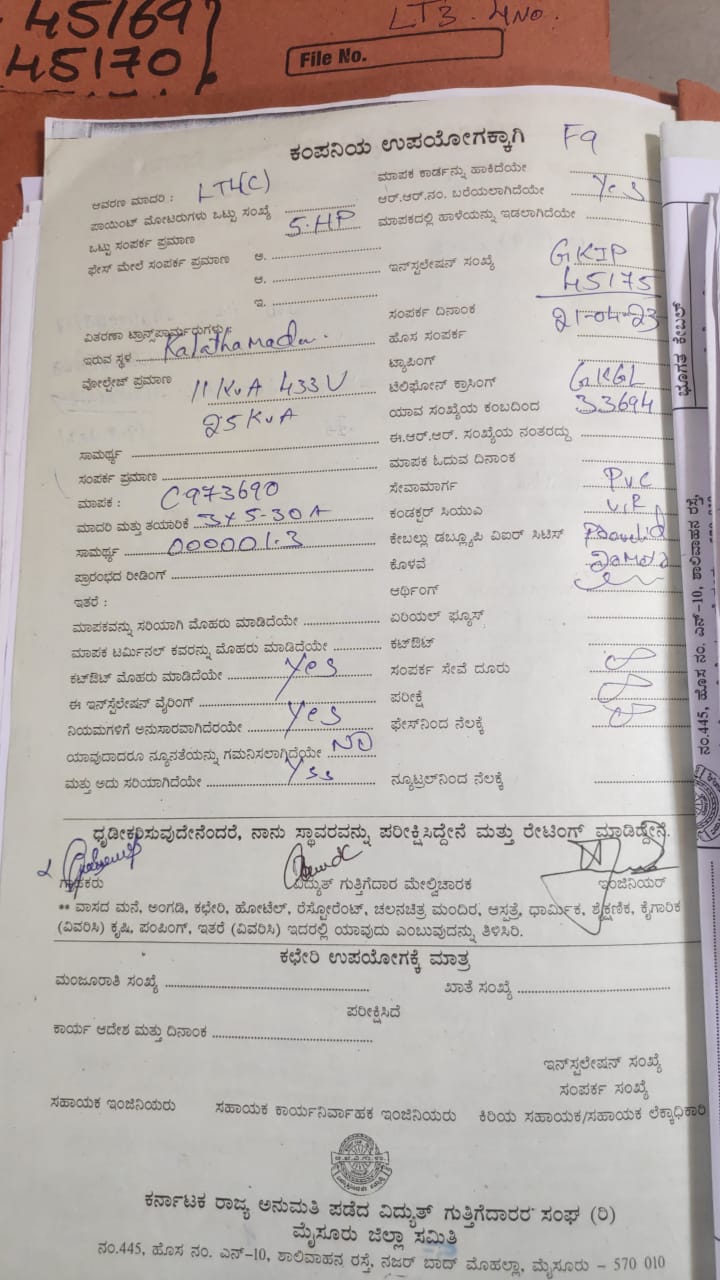 45169
45170
LT3. 4 NO.
File No.
ಕಂಪನಿಯ ಉಪಯೋಗಕ್ಕಾಗಿ F9
ಆವರಣ ಮಾದರಿ : LT4(C)
ಪಾಯಿಂಟ್ ಮೋಟರುಗಳು ಒಟ್ಟು ಸಂಖ್ಯೆ
ಒಟ್ಟು ಸಂಪರ್ಕ ಪ್ರಮಾಣ 5.HP
ಫೇಸ್ ಮೇಲೆ ಸಂಪರ್ಕ ಪ್ರಮಾಣ ಅ.
ಆ.
ಇ.
ವಿತರಣಾ ಟ್ರಾನ್ಸ್‌ಫಾರ್ಮರುಗಳು :
ಇರುವ ಸ್ಥಳ Kalathamadu.
ವೋಲ್ಟೇಜ್ ಪ್ರಮಾಣ 11 KVA 433 V
25 KVA
ಸಾಮರ್ಥ್ಯ
ಸಂಪರ್ಕ ಪ್ರಮಾಣ
ಮಾಪಕ : C973690
ಮಾದರಿ ಮತ್ತು ತಯಾರಿಕೆ 3x5-30A
ಸಾಮರ್ಥ್ಯ 000001.3
ಪ್ರಾರಂಭದ ರೀಡಿಂಗ್
ಇತರೆ :
ಮಾಪಕವನ್ನು ಸರಿಯಾಗಿ ಮೊಹರು ಮಾಡಿದೆಯೇ
ಮಾಪಕ ಟರ್ಮಿನಲ್ ಕವರನ್ನು ಮೊಹರು ಮಾಡಿದೆಯೇ
ಕಟ್‌ಔಟ್ ಮೊಹರು ಮಾಡಿದೆಯೇ Yes
ಈ ಇನ್‌ಸ್ಟಲೇಷನ್ ವೈರಿಂಗ್
ನಿಯಮಗಳಿಗೆ ಅನುಸಾರವಾಗಿದೆರಯೇ Yes
ಯಾವುದಾದರೂ ನ್ಯೂನತೆಯನ್ನು ಗಮನಿಸಲಾಗಿದೆಯೇ NO
ಮತ್ತು ಅದು ಸರಿಯಾಗಿದೆಯೇ Yes
ಮಾಪಕ ಕಾರ್ಡನ್ನು ಹಾಕಿದೆಯೇ
ಆರ್.ಆರ್.ನಂ. ಬರೆಯಲಾಗಿದೆಯೇ Yes
ಮಾಪಕದಲ್ಲಿ ಹಾಳೆಯನ್ನು ಇಡಲಾಗಿದೆಯೇ
ಇನ್‌ಸ್ಟಲೇಷನ ಸಂಖ್ಯೆ GKIP
45175
ಸಂಪರ್ಕ ದಿನಾಂಕ 21-04-23
ಹೊಸ ಸಂಪರ್ಕ
ಟ್ಯಾಪಿಂಗ್
ಟೆಲಿಫೋನ್ ಕ್ರಾಸಿಂಗ್ GKGL
ಯಾವ ಸಂಖ್ಯೆಯ ಕಂಬದಿಂದ 33694
ಈ.ಆರ್.ಆರ್. ಸಂಖ್ಯೆಯ ನಂತರದ್ದು
ಮಾಪಕ ಓದುವ ದಿನಾಂಕ
ಸೇವಾಮಾರ್ಗ PVC
ಕಂಡಕ್ಟರ್ ಸಿಯುಎ VIR
ಕೇಬಲ್ಲು ಡಬ್ಲ್ಯೂಪಿ ವಿಐರ್ ಸಿಟಿಸ್
ಕೊಳವೆ
ಆರ್ಥಿಂಗ್
ಏರಿಯಲ್ ಫ್ಯೂಸ್
ಕಟ್‌ಔಟ್
ಸಂಪರ್ಕ ಸೇವೆ ದೂರು
ಪರೀಕ್ಷೆ
ಫೇಸ್‌ನಿಂದ ನೆಲಕ್ಕೆ
ನ್ಯೂಟ್ರಲ್‌ನಿಂದ ನೆಲಕ್ಕೆ
ಧೃಡೀಕರಿಸುವುದೇನೆಂದರೆ, ನಾನು ಸ್ಥಾವರವನ್ನು ಪರೀಕ್ಷಿಸಿದ್ದೇನೆ ಮತ್ತು ರೇಟಿಂಗ್ ಮಾಡಿದ್ದೇನೆ.
ಗ್ರಾಹಕರು ವಿದ್ಯುತ್ ಗುತ್ತಿಗೆದಾರ ಮೇಲ್ವಿಚಾರಕ ಇಂಜಿನಿಯರ್
** ವಾಸದ ಮನೆ, ಅಂಗಡಿ, ಕಛೇರಿ, ಹೋಟೆಲ್, ರೆಸ್ಟೋರೆಂಟ್, ಚಲನಚಿತ್ರ ಮಂದಿರ, ಆಸ್ಪತ್ರೆ, ಧಾರ್ಮಿಕ, ಶೈಕ್ಷಣಿಕ, ಕೈಗಾರಿಕ
(ವಿವರಿಸಿ) ಕೃಷಿ, ಪಂಪಿಂಗ್, ಇತರೆ (ವಿವರಿಸಿ) ಇದರಲ್ಲಿ ಯಾವುದು ಎಂಬುವುದನ್ನು ತಿಳಿಸಿರಿ.
ಕಛೇರಿ ಉಪಯೋಗಕ್ಕೆ ಮಾತ್ರ
ಮಂಜೂರಾತಿ ಸಂಖ್ಯೆ ಖಾತೆ ಸಂಖ್ಯೆ
ಪರೀಕ್ಷಿಸಿದೆ
ಕಾರ್ಯ ಆದೇಶ ಮತ್ತು ದಿನಾಂಕ
ಇನ್‌ಸ್ಟಲೇಷನ್ ಸಂಖ್ಯೆ
ಸಂಪರ್ಕ ಸಂಖ್ಯೆ
ಸಹಾಯಕ ಇಂಜಿನಿಯರು ಸಹಾಯಕ ಕಾರ್ಯನಿರ್ವಾಹಕ ಇಂಜಿನಿಯರು ಕಿರಿಯ ಸಹಾಯಕ/ಸಹಾಯಕ ಲೆಕ್ಕಾಧಿಕಾರಿ
ಕರ್ನಾಟಕ ರಾಜ್ಯ ಅನುಮತಿ ಪಡೆದ ವಿದ್ಯುತ್ ಗುತ್ತಿಗೆದಾರರ ಸಂಘ (ರಿ)
ಮೈಸೂರು ಜಿಲ್ಲಾ ಸಮಿತಿ
ನಂ.445, ಹೊಸ ನಂ. ಎನ್-10, ಶಾಲಿವಾಹನ ರಸ್ತೆ, ನಜರ್ ಬಾದ್ ಮೊಹಲ್ಲಾ, ಮೈಸೂರು - 570 010
ಭೂಗತ ಕೇಬಲ್
ನಂ.445, ಹೊಸ ನಂ. ಎನ್-10, ಶಾಲಿವಾಹನ ರಸ್ತೆ,